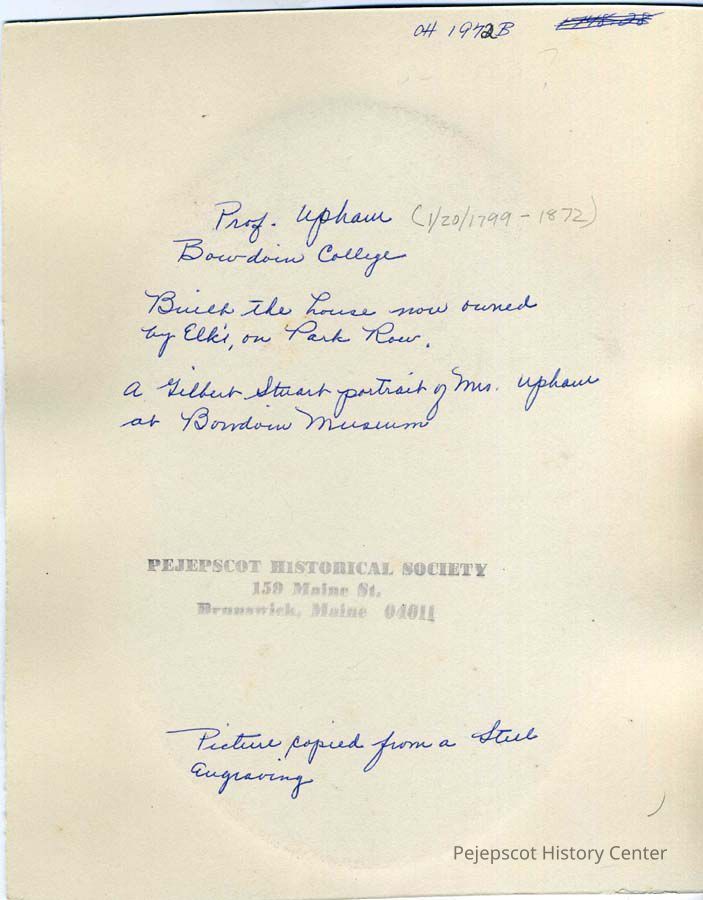 OH 1972B
Prof. Upham (1/20/1799-1872)
Bowdoin College
Built the house now owned
by Elk's, on Park Row.
A Gilbert Stuart portrait of Mrs. Upham
at Bowdoin Museum
PEJEPSCOT HISTORICAL SOCIETY
159 Maine St.
Brunswick, Maine 04011
Picture copied from a Steel
Engraving
Pejepscot History Center